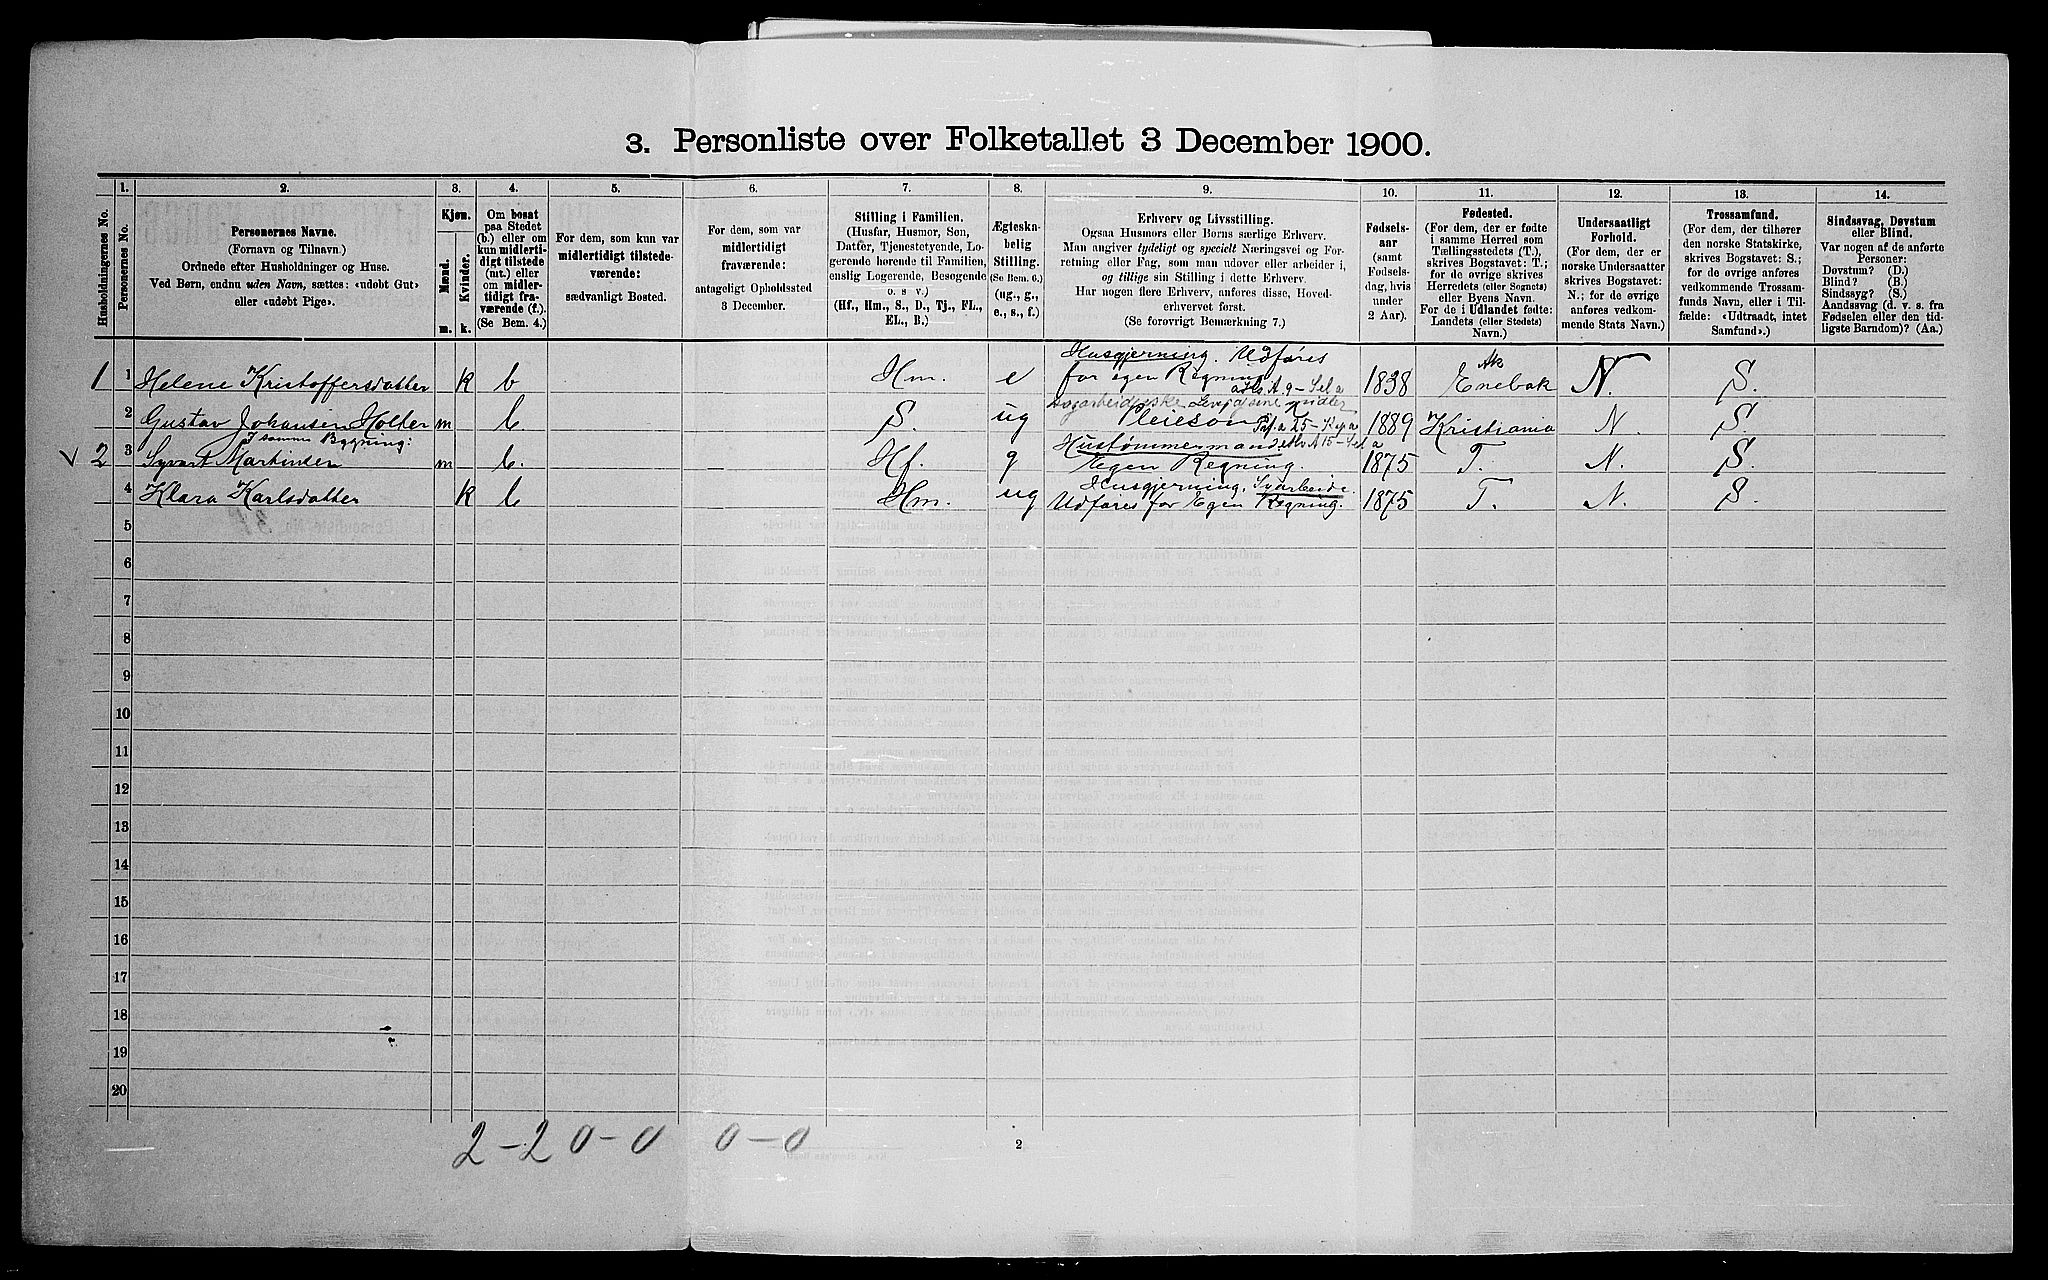 3. Personliste over Folketallet 3 December 1900.
Husholdningernes No.
1.
Personernes No.
2.
Personernes Navne.
(Fornavn og Tilnavn.)
Ordnede efter Husholdninger og Huse.
Ved Børn, endnu uden Navn, sættes: «udøbt Gut»
eller «udøbt Pige».
3.
Kjøn.
Mænd.
Kvinder.
m.
k.
4.
Om bosat
paa Stedet
(b.) eller om
kun midlerti-
digt tilstede
(mt.) eller
om midler-
tidigt fra-
værende (f.).
(Se Bem. 4.)
5.
For dem, som kun var
midlertidigt tilstede-
værende:
sædvanligt Bosted.
6.
For dem, som var
midlertidigt
fraværende:
antageligt Opholdssted
3 December.
7.
Stilling i Familien.
(Husfar, Husmor, Søn,
Datter, Tjenestetyende, Lo-
gerende hørende til Familien,
enslig Logerende, Besøgende
o. s. v.)
(Hf., Hm., S., D., Tj., FL.,
EL., B.)
8.
Ægteska-
belig
Stilling.
(Se Bem. 6.)
(ug., g.,
e., s., f.)
9.
Erhverv og Livsstilling.
Ogsaa Husmors eller Børns særlige Erhverv.
Man angiver tydeligt og specielt Næringsvei og For-
retning eller Fag, som man udøver eller arbeider i,
og tillige sin Stilling i dette Erhverv.
Har nogen flere Erhverv, anføres disse, Hoved-
erhvervet først.
(Se forøvrigt Bemærkning 7.)
10.
Fødsels-
aar
(samt
Fødsels-
dag, hvis
under
2 Aar).
11.
Fødested.
(For dem, der er fødte
i samme Herred som
Tællingsstedets (T.),
skrives Bogstavet: T.;
for de øvrige skrives
Herredets (eller Sognets)
eller Byens Navn.
For de i Udlandet fødte:
Landets (eller Stedets)
Navn.)
12.
Undersaatligt
Forhold.
(For dem, der er
norske Undersaatter
skrives Bogstavet:
N.; for de øvrige
anføres vedkom-
mende Stats Navn.)
13.
Trossamfund.
(For dem, der tilhører
den norske Statskirke,
skrives Bogstavet: S.;
for de øvrige anføres
vedkommende Trossam-
funds Navn, eller i Til-
fælde: «Udtraadt, intet
Samfund».)
14.
Sindssvag, Døvstum
eller Blind.
Var nogen af de anførte
Personer:
Døvstum? (D.)
Blind? (B.)
Sindssyg? (S.)
Aandssvag (d. v. s. fra
Fødselen eller den tid-
ligste Barndom)? (Aa.)
1 1 Helene Kristoffersdatter k b Hm. e Husgjerning. Udføres
for egen Regning 1838 Ak Enebak N. S.
2 Gustav Johansen Holter m b S. ug Pleiesøn 1889 Kristiania N. S.
I samme Bygning:
2 3 Syvert Martinsen m b. Hf. g Hustømmermand
Egen Regning. 1875 T. N. S.
4 Klara Karlsdatter k b Hm. ug Husgjerning, Syarbeide.
Udføres for Egen Regning. 1875 T. N. S.
5
6
7
8
9
10
11
12
13
14
15
16
17
18
19
20
2 – 2 0 – 0 0 – 0
2